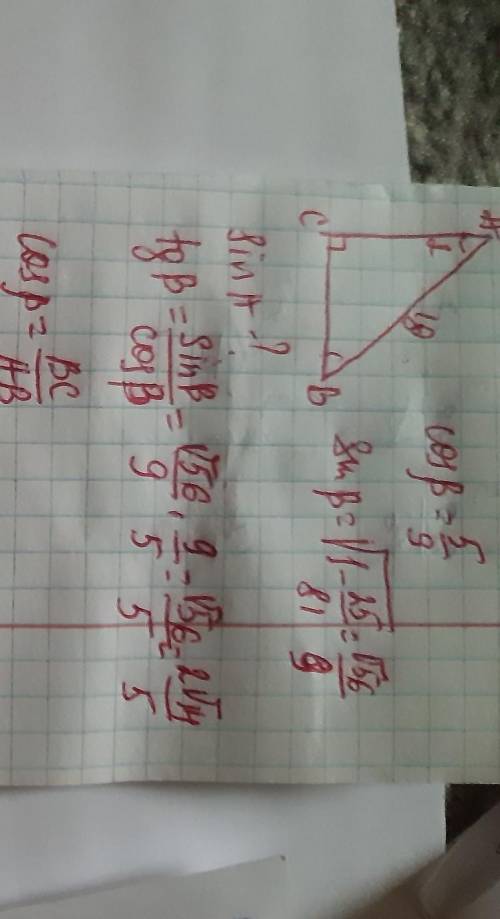 A
C
B
18
cos β = 5/9
sin β = √(1 - 25/81) = √56/9
sin A - ?
tg β = sin β / cos β = √56/9 · 9/5 = √56/5 = 2√14/5
cos β = BC/AB